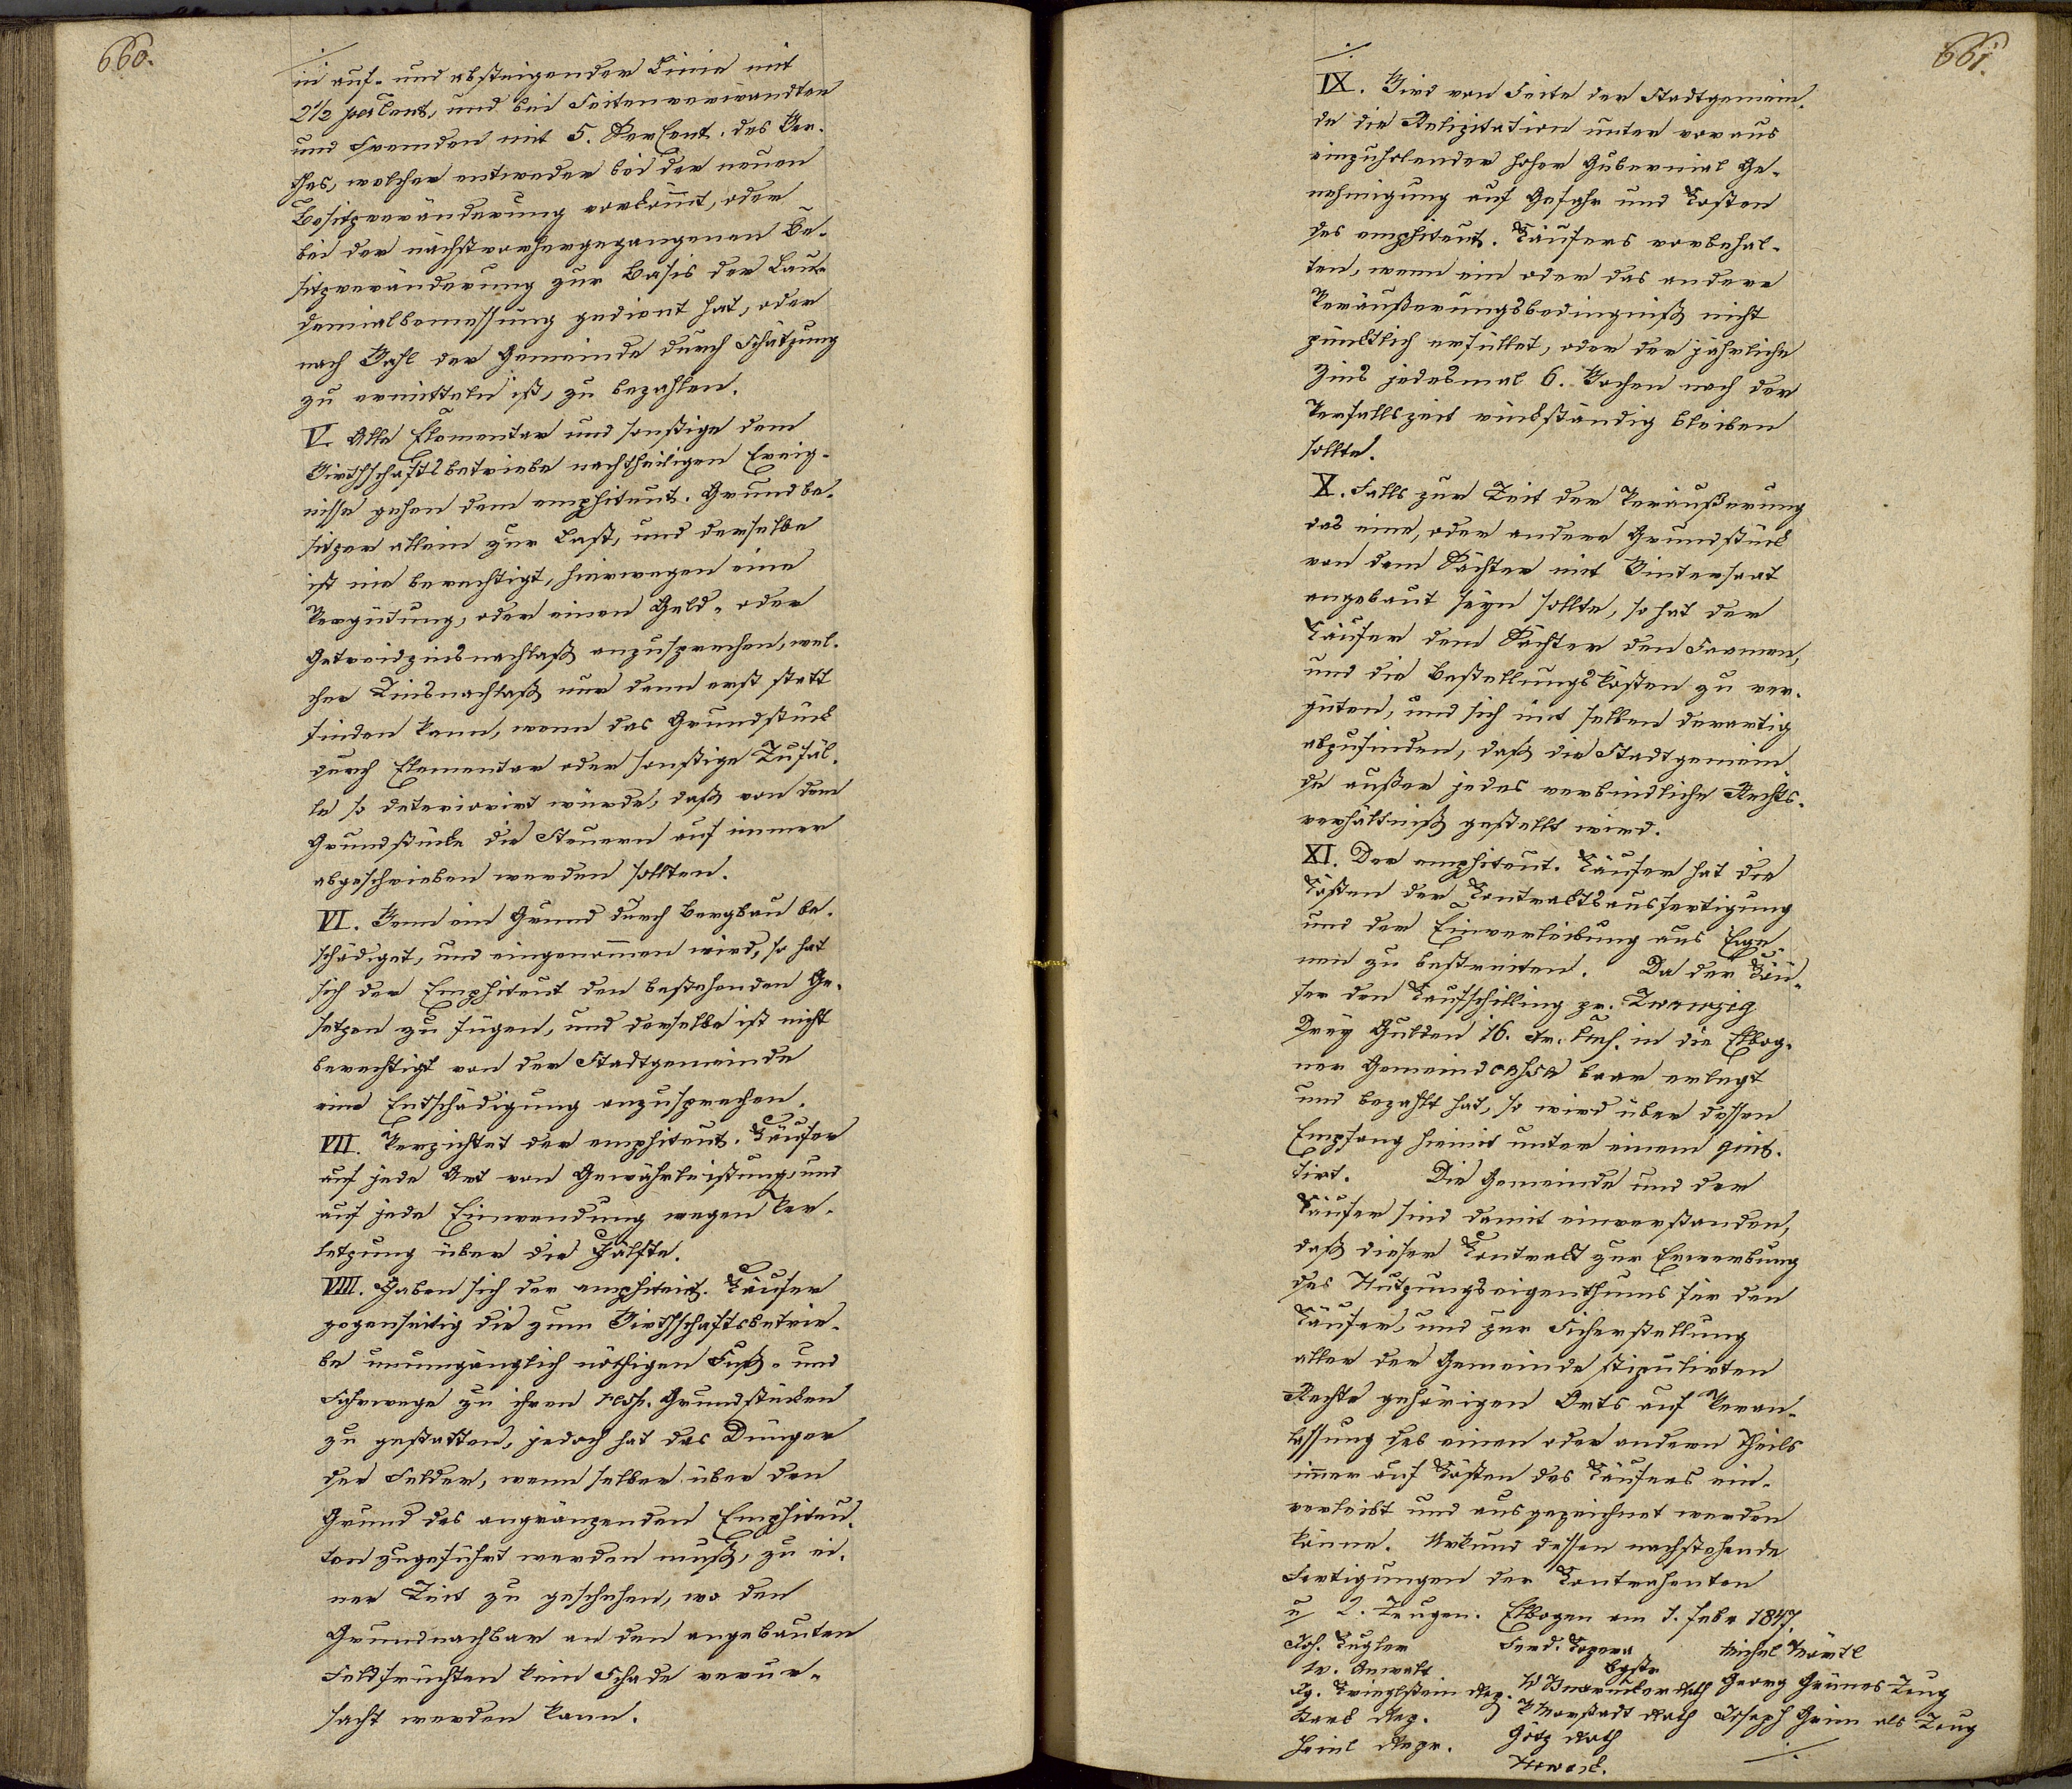 660.
in auf- und absteigender Linie mit
2 1/2 perCent, und bei Seitenverwandten
und Fremden mit 5. PerCent. des Wer-
thes, welcher entweder bei der neuen
Besitzveränderung vorkom̅t, oder
bei der nächstvorhergegangenen Be-
sitzveränderung zur Basis der Lau-
demialbemessung gedient hat, oder
nach Wahl der Gemeinde durch Schätzung
zu ermitteln ist, zu bezahlen.
V. Alle Elementar und sonstige dem
Wirthschaftsbetriebe nachtheiligen Ereig-
nisse gehen dem emphiteut. Grundbe-
sitzer allein zur Last, und derselbe
ist nie berechtigt, hierwegen eine
Vergütung, oder einen Geld- oder
Getreidzinsnachlaß anzusprechen, wel-
cher Zinsnachlaß nur dann erst statt
finden kann, wenn das Grundstück
durch Elementar oder sonstige Zufäl-
le so deteriorirt würde, daß von dem
Grundstücke die Steuern auf immer
abgeschrieben werden sollten.
VI. Wenn ein Grund durch Bergbau be-
schädiget, und eingenom̅en wird, so hat
sich der Emphiteut den bestehenden Ge-
setzen zu fügen, und derselbe ist nicht
berechtigt von der Stadtgemeinde
eine Entschädigung anzusprechen.
VII. Verzichtet der emphiteut. Käufer
auf jede Art von Gewährleistung, und
auf jede Einwendung wegen Ver-
letzung über die Hälfte.
VIII. Haben sich der emphiteut. Käufer
gegenseitig die zum Wirthschaftsbetrie-
be unumgänglich nöthigen Fuß- und
Fahrwege zu ihren resp. Grundstücken
zu gestatten, jedoch hat das Düngen
der Felder, wenn selber über den
Grund des angränzenden Emphiteu-
ten zugeführt werden muß, zu ei-
ner Zeit zu geschehen, wo den
Grundnachbar an den angebauten
Feldfrüchten kein Schade verur-
sacht werden kann.
661.
IX. Wird von Seite der Stadtgemein-
de die Relizitation unter voraus
einzuholender hoher Gubernial Ge-
nehmigung auf Gefahr und Kosten
des emphiteut. Käufers vorbehal-
ten, wenn ein oder das andere
Veräußerungsbedingniß nicht
pünktlich erfüllet, oder der jährliche
Zins jedesmal 6. Wochen nach der
Verfallszeit rückständig bleiben
sollte.
X. Falls zur Zeit der Veräußerung
das eine, oder andere Grundstück
von dem Pächter mit Wintersaat
angebaut seyn sollte, so hat der
Käufer dem Pächter den Saamen,
und die Bestellungskosten zu ver-
güten, und sich mit selben derartig
abzufinden, daß die Stadtgemein-
de außer jedes verbindliche Rechts-
verhältniß gestellt wird.
XI. Der emphiteut. Käufer hat die
Kosten der Kontraktsausfertigung
und der Einverleibung aus Eige-
nen zu bestreiten. Da der Käu-
fer den Kaufschilling pr. Zwanzig
Drey Gulden 16. xr. CMz. in die Elbog-
ner Gemeindcassa baar erlegt
und bezahlt hat, so wird über dessen
Empfang hiemit unter einem quit-
tirt. Die Gemeinde und der
Käufer sind damit einverstanden,
daß dieser Kontrakt zur Erwerbung
des Nutzungseigenthums für den
Käufer, und zur Sicherstellung
aller der Gemeinde stipulirten
Rechte gehörigen Orts auf Veran-
lassung des einen oder andern Theils
im̅er auf Kosten des Käufers ein-
verleibt und ausgezeichnet werden
könne. Urkund dessen nachstehende
Fertigungen der Kontrahenten
u 2. Zeugen. Elbogen am 1. Febr 1847.
Joh. Kugler Ferd. Michel
Anwalt Bgstr Georg Grünes Zeug
Rep. Rath Joseph Grim als Zeug
Rep. Rath
Heinl Repr. Götz Rath